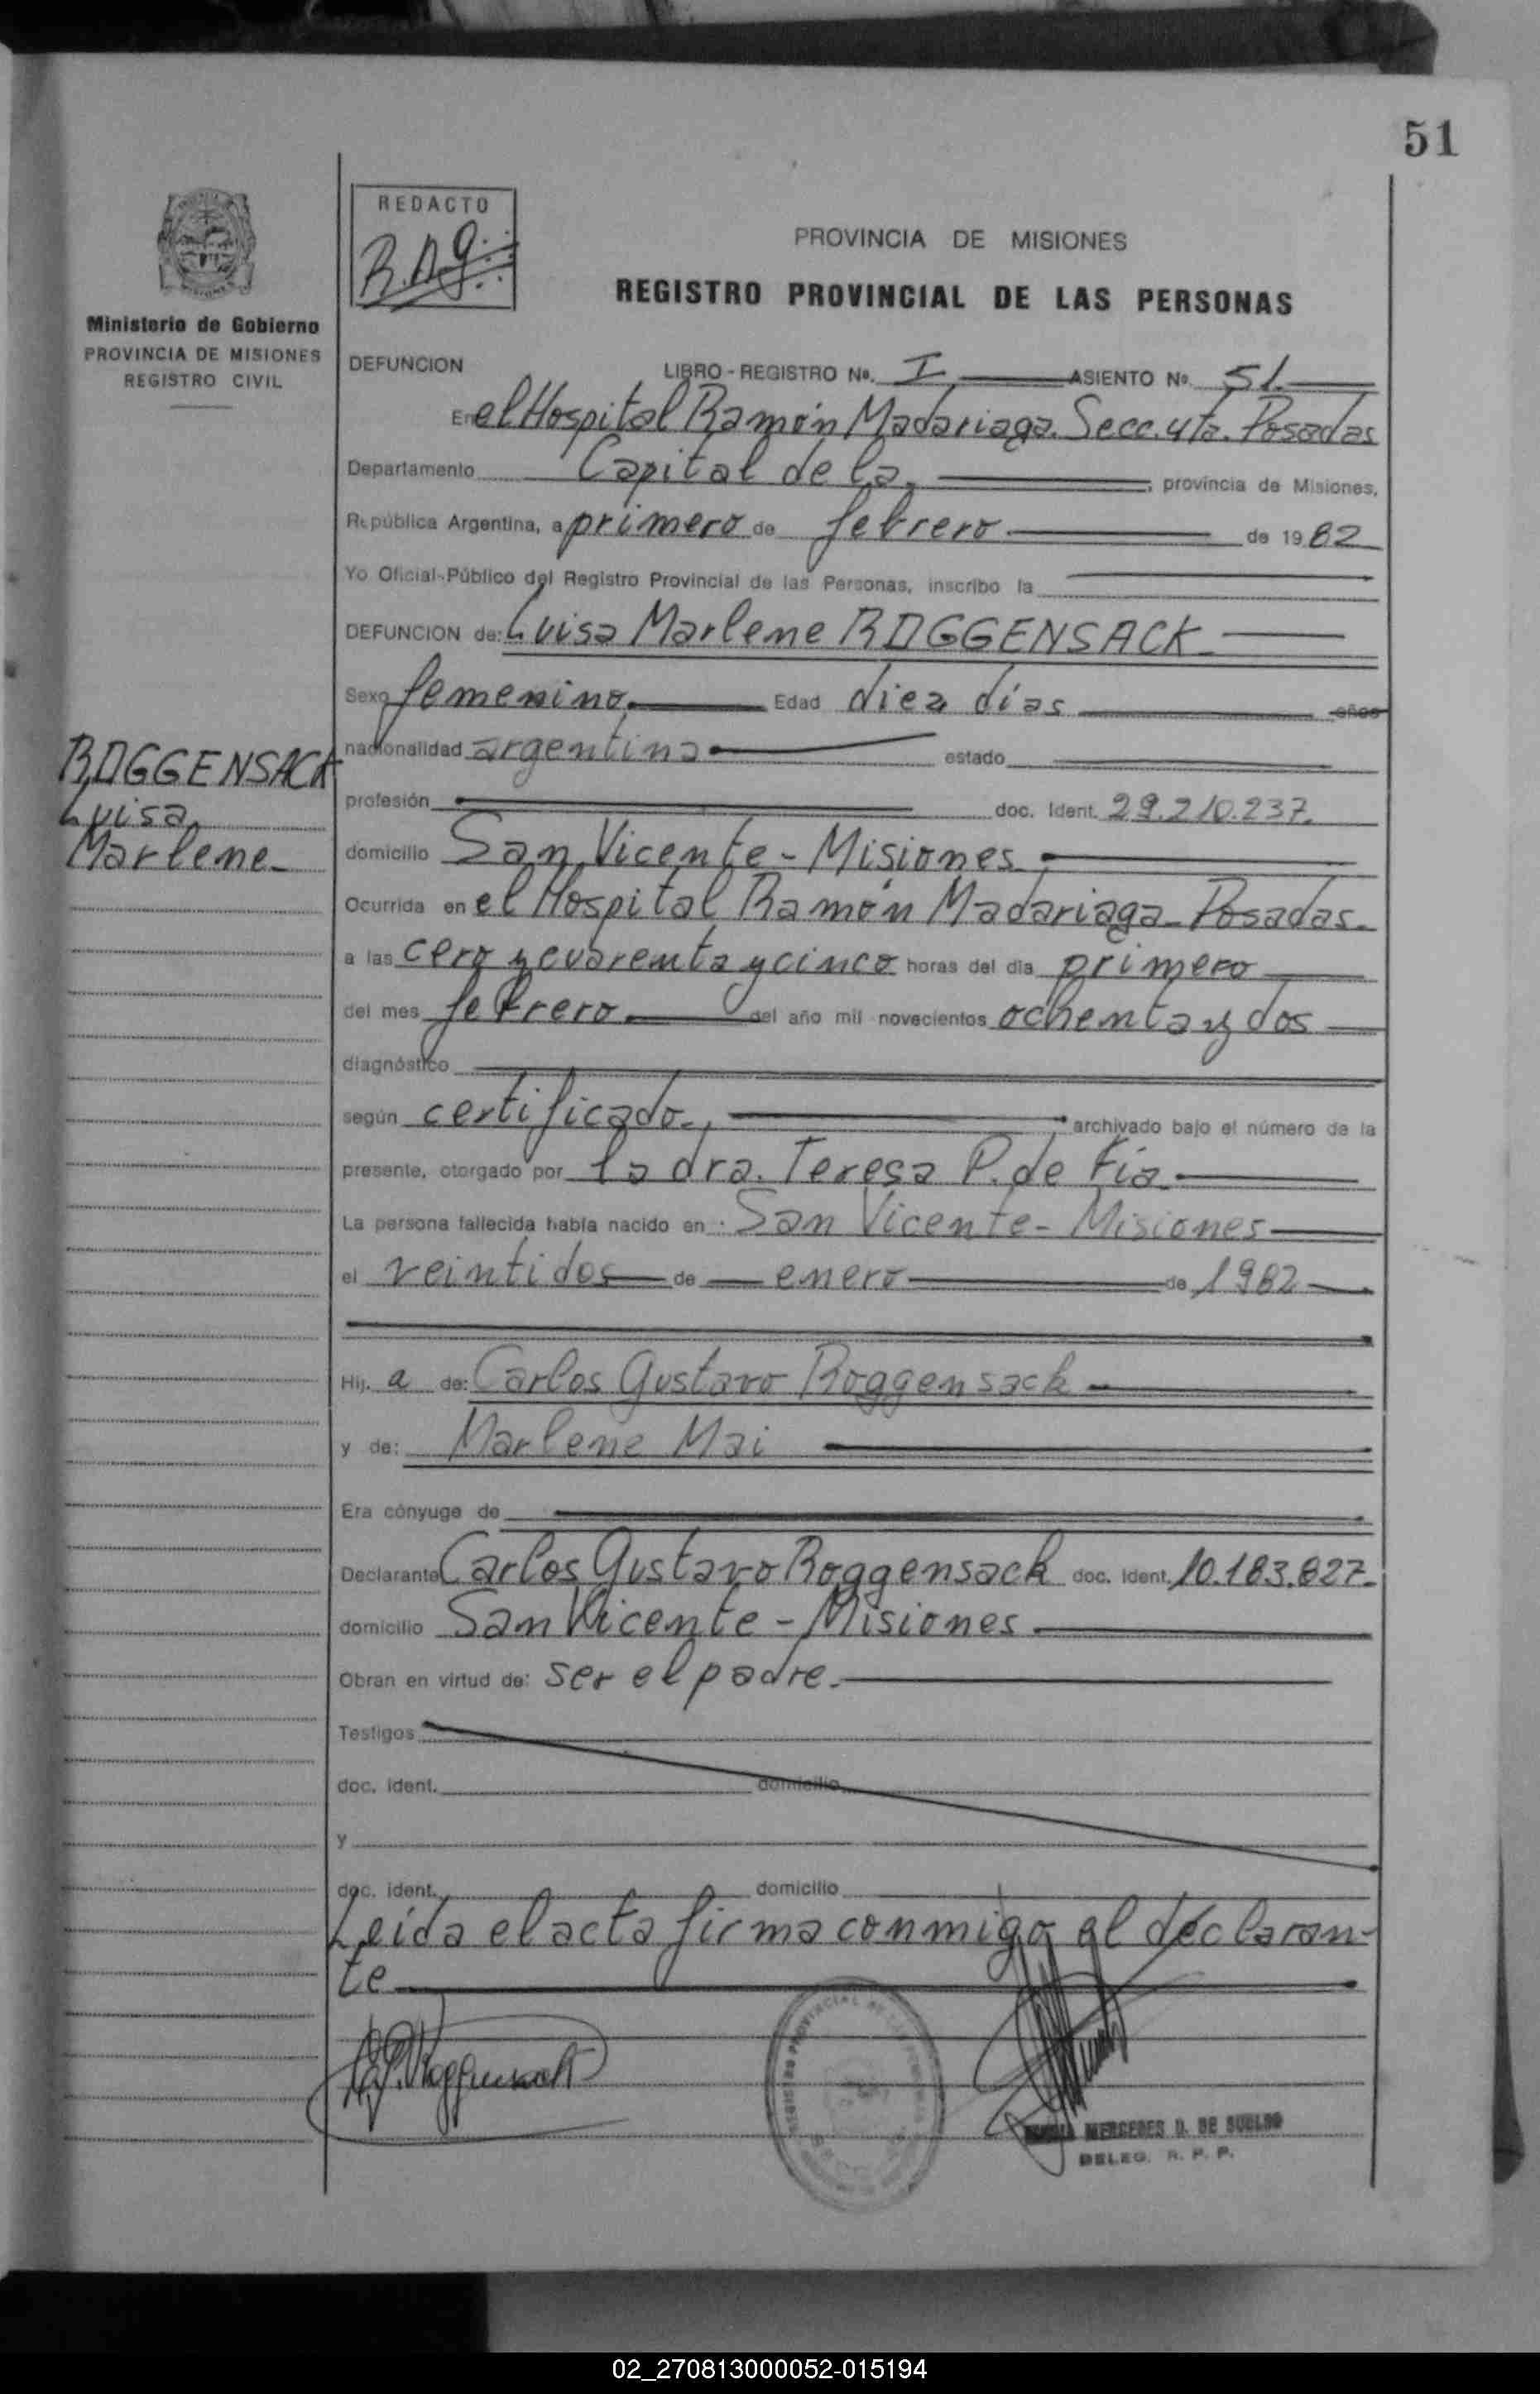 51
REDACTO
R.A.g.
PROVINCIA DE MISIONES
REGISTRO PROVINCIAL DE LAS PERSONAS
Ministerio de Gobierno
PROVINCIA DE MISIONES
REGISTRO CIVIL
DEFUNCION LIBRO - REGISTRO No. I ASIENTO No. 51.
En el Hospital Ramón Madariaga. Secc. 4ta. Posadas
Departamento Capital de la, provincia de Misiones,
República Argentina, a primero de febrero de 1982
Yo Oficial-Público del Registro Provincial de las Personas, inscribo la
DEFUNCION de: Luisa Marlene ROGGENSACK
Sexo femenino. Edad diez días años
ROGGENSACK
Luisa
Marlene
nacionalidad argentina estado
profesión doc. Ident. 29.210.237.
domicilio San Vicente - Misiones
Ocurrida en el Hospital Ramón Madariaga - Posadas.
a las cero y cuarenta y cinco horas del día primero
del mes febrero del año mil novecientos ochenta y dos
diagnóstico
según certificado., archivado bajo el número de la
presente, otorgado por la dra. Teresa P. de Fía.
La persona fallecida había nacido en: San Vicente - Misiones
el veintidos de enero de 1982
Hij. a de: Carlos Gustavo Roggensack
y de: Marlene Mai
Era cónyuge de
Declarante Carlos Gustavo Roggensack doc. ident. 10.183.827.
domicilio San Vicente - Misiones
Obran en virtud de: ser el padre.
Testigos
doc. ident. domicilio
y
doc. ident. domicilio
Leída el acta firma conmigo el declaran-
te
MERCEDES D. DE
DELEG. R. P. P.
02_270813000052-015194